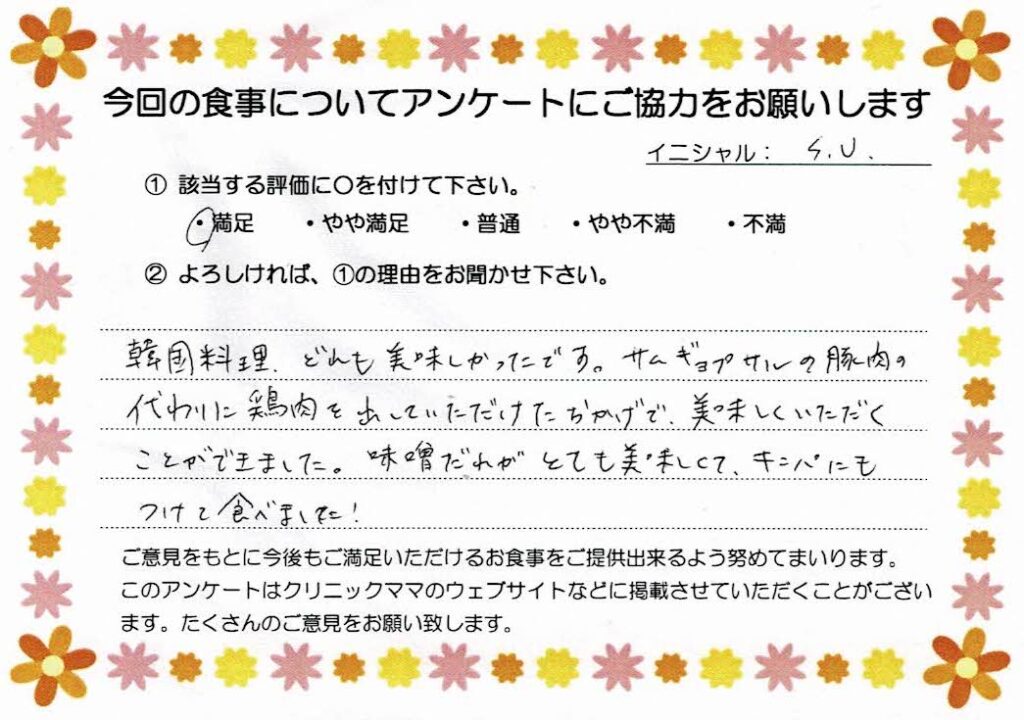 今回の食事についてアンケートにご協力をお願いします
イニシャル： S.U.
① 該当する評価に〇を付けて下さい。
・満足 ・やや満足 ・普通 ・やや不満 ・不満
② よろしければ、①の理由をお聞かせ下さい。
韓国料理、どれも美味しかったです。サムギョプサルの豚肉の
代わりに鶏肉を出していただけたおかげで、美味しくいただく
ことができました。味噌だれがとても美味しくて、キンパにも
つけて食べました！
ご意見をもとに今後もご満足いただけるお食事をご提供出来るよう努めてまいります。
このアンケートはクリニックママのウェブサイトなどに掲載させていただくことがござい
ます。たくさんのご意見をお願い致します。